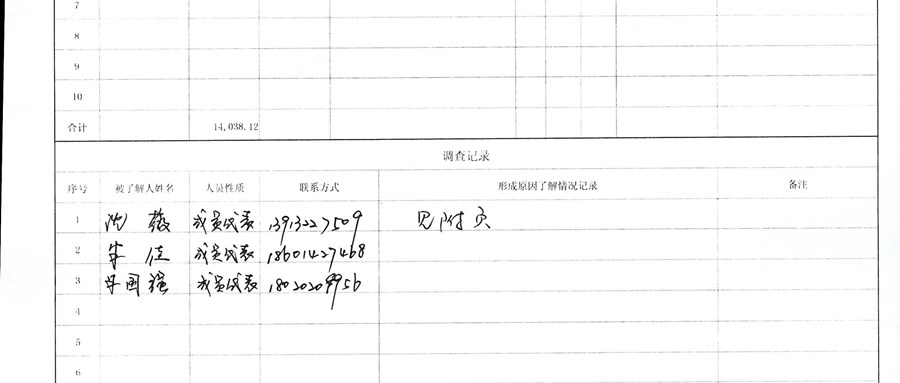 7
8
9
10
合计 14,038.12
调查记录
序号 被了解人姓名 人员性质 联系方式 形成原因了解情况记录 备注
1 沈薇 成员代表 13913227509 见附页
2 佳 成员代表 18601427468
3 国强 成员代表 18020209956
4
5
6